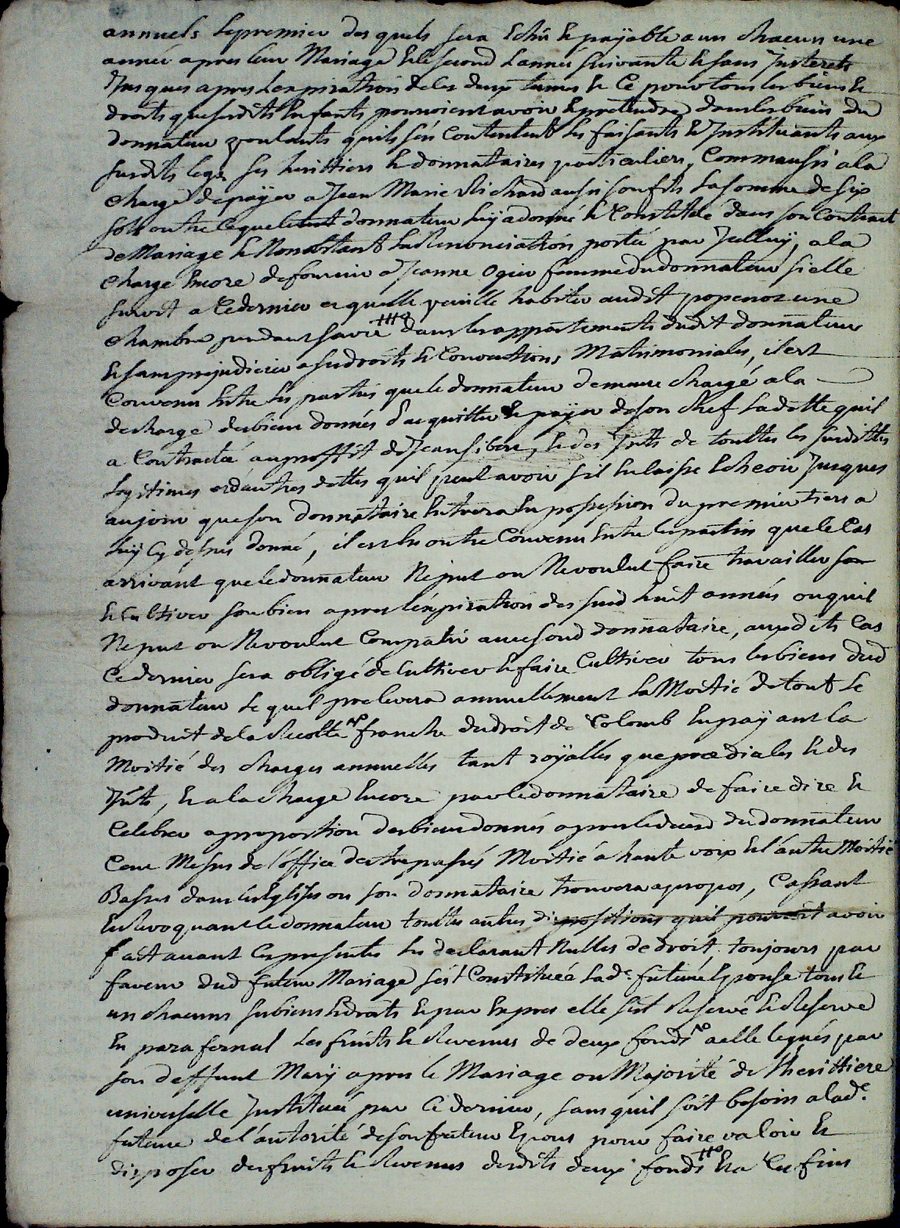 annuels le premier des quels sera Echû Et payable a un chacuns une
année apres leur Mariage Et le second Lannée suivante Et sans Interets
Jusques apres Lexpiration de les deux termes Et Ce pour tous les biens Et
droits que sesdits Enfants pourroient avoir Et pretendre dans les biens du
donnateur voulants quils s'en Contentent Les faisants Et Instituants aux
susdits legs ses heritiers Et donnataires particuliers, Comm'aussi a la
charge de payer a Jean Marie Richard aussi son fils La somme de six
sols outre Ce que led donnateur luy a donné Et Constitué dans son Contract
de Mariage Et Nonobstant La Renonciation portée par Icelluy, a la
charge Encore de fournir a Jeanne Ogier femme du donnateur si elle
survit a Ce dernier Et quelle veuille habiter audit une
chambre pendant sa vie dans les appartements dudit donnateur
Et sans prejudicier a ses droits Et Conventions Matrimoniales, il est
Convenu Entre les parties que le donnateur demeure chargé a la
decharge des biens donnés d'acquitter Et payer de son chef La dette quil
a Contractée au proffit de Jean Et des Ints de touttes les susdittes
legitimes et d'autres dettes quil peut avoir s'il En laisse Echeoir Jusques
au jour que son donnataire Entrera En possession du premier tiers a
luy Cy dessus donné, il est En outre Convenu Entre les parties que le Cas
arrivant que le donnateur Ne put ou Ne voulut faire travailler son
Et Cultiver son bien apres l'expiration des susd huit années ou quil
Ne put ou Ne voulut Compatir avec sond donnataire, auxdits Cas
Ce dernier sera obligé de Cultiver Et faire Cultiver tous les biens dud
donnateur Le quel prelevera annuellement La Moitié de tout Le
produit de la Recolte franche du droit de Colomb En payant La
Moitié des charges annuelles tant royalles que prædiales Et des
Ints, Et a la charge Encore par le donnataire de faire dire Et
Celebrer a proportion des biens donnés apres le deces du donnateur
Cent Messes de l'office des trepassés Moitié a haute voix Et l'autre Moitié
Basses dans les Eglises ou son donnataire trouvera a propos, Cassant
Et Revoquant le donnateur touttes autres dispositions quil pourroit avoir
fait avant Ces presentes Les declarant Nulles de droit. toujours par
faveur dud futur Mariage s'est Constituée Lade future Epouse tous Et
un chacuns ses biens Et droits Et par Expres elle s'est Reservé Et Reserve
En parafernal Les fruits Et Revenus de deux fonds a elle legués par
son deffunt Mary apres le Mariage ou Majorité de l'herittiere
universelle Instituée par Ce dernier, sans quil soit besoin a lade
future de l'autorité de son futur Epoux pour faire valoir Et
disposer des fruits Et Revenus desdits deux fonds Et a Ces fins